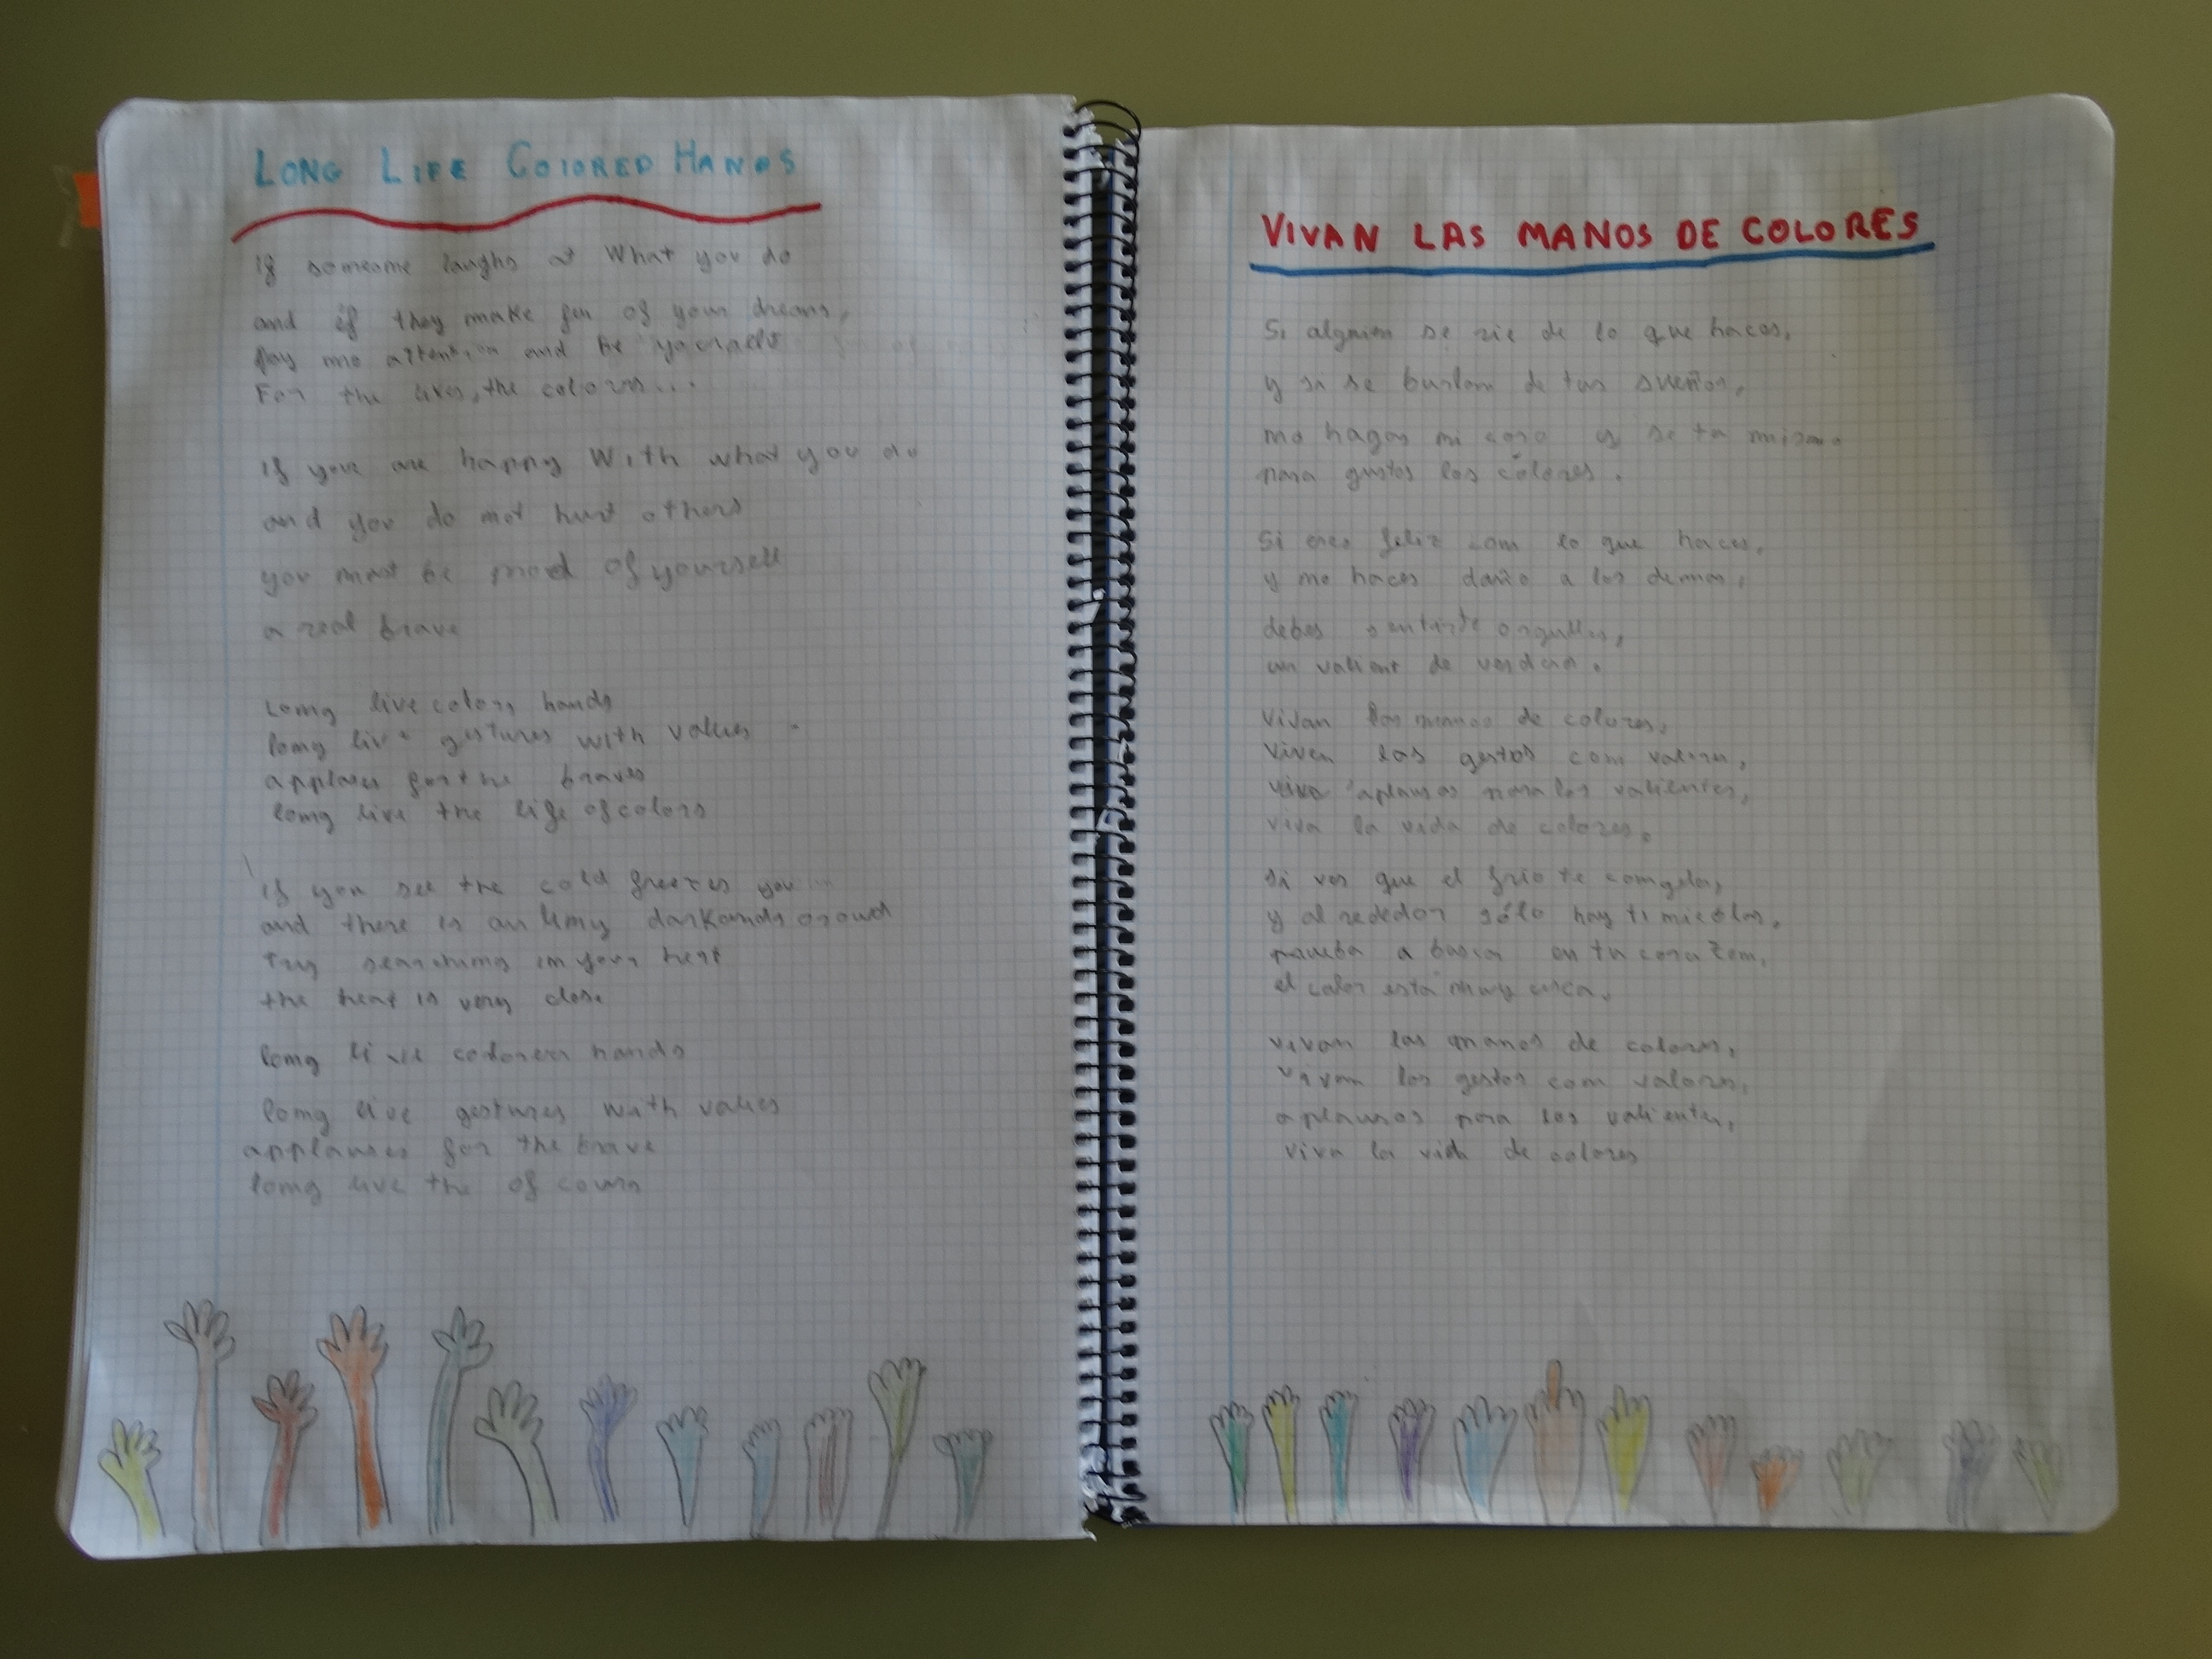 LONG LIFE COLORED HANDS
If someome laughs at What you do
and if they make fun of your dreams,
Pay mo attention and be
For the lives, the colors...
If you are happy With what you do
and you do mot hurt others
you must be proud of yourself
a real brave
Long live colors hands
long live gestures with values
applaus for the braves
long live the life of colors
If you see the cold freezes you
and there is an
Try searching im your heat
the heat is very close
long live colores hands
long live gestures with values
applauses for the brave
long live the of
VIVAN LAS MANOS DE COLORES
Si alguien se rie de lo que haces,
y si se burlan de tus sueños,
mo hagas ni caso y se tu mismo
para gustos los colores.
Si eres feliz com lo que haces,
y mo haces daño a los demas,
debes sentirte
un valient de verdad.
Vivan las manos de colores,
Viven los gestos com valores,
viva aplausos para los valientes,
viva la vida de colores.
Si ves que el frio te comgela,
y al rededor sólo hay
prueba a buscar en tu corazom,
el calor está muy cerca.
vivan las manos de colores,
vivan los gestos com valores,
aplausos para los valientes,
viva la vida de colores